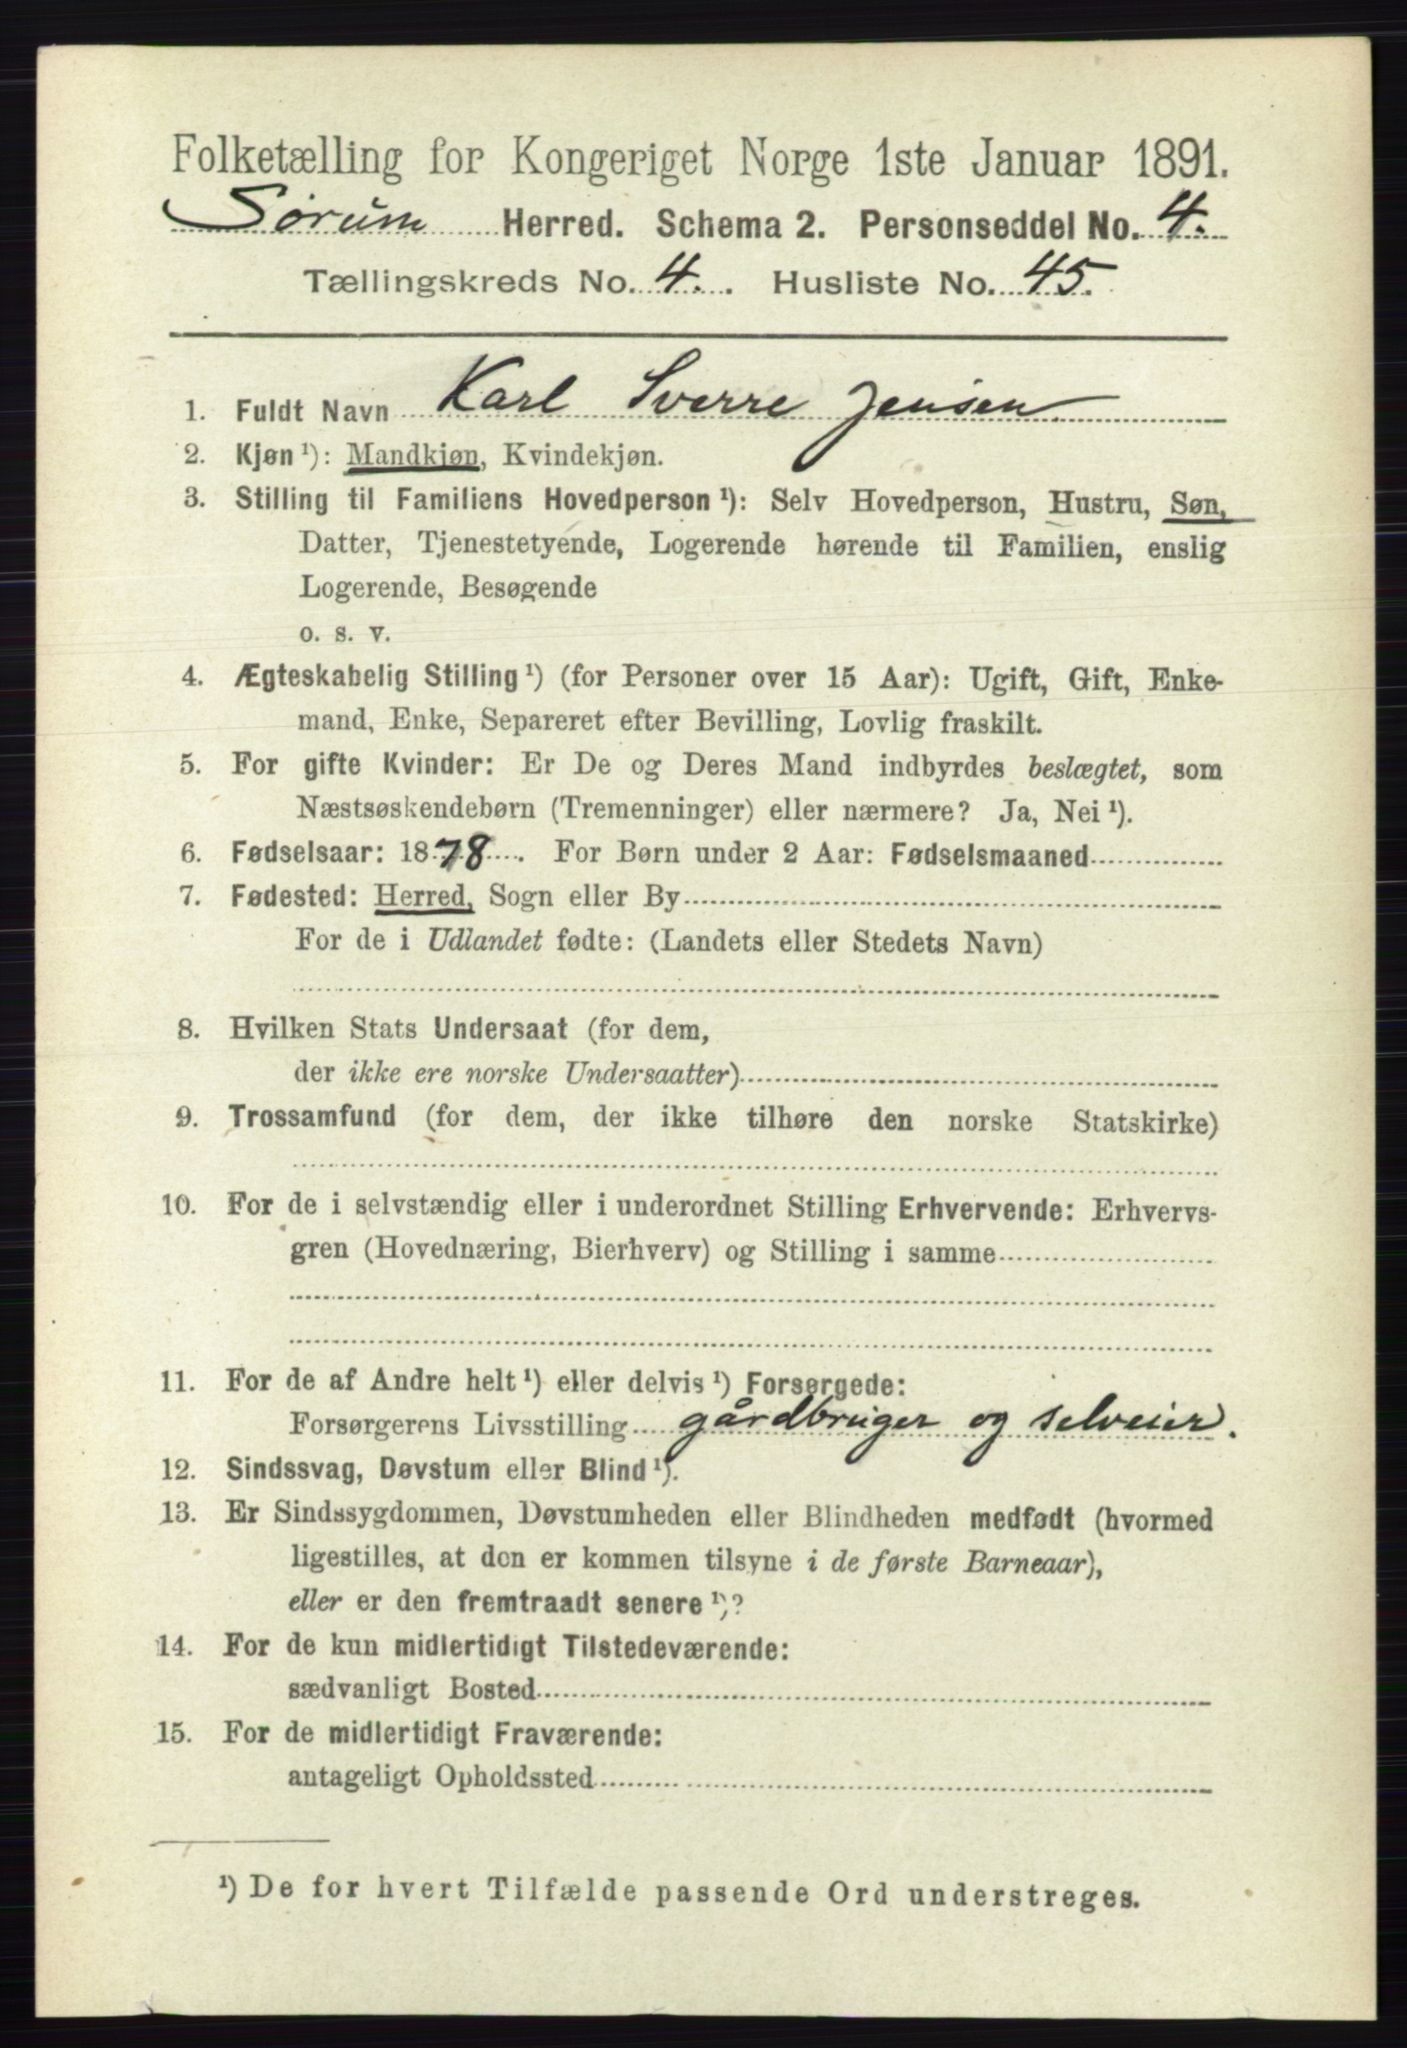 Folketælling for Kongeriget Norge 1ste Januar 1891.
Sørum Herred. Schema 2. Personseddel No. 4.
Tællingskreds No. 4. Husliste No. 45.
1. Fuldt Navn Karl Sverre Jensen
2. Kjøn ¹): Mandkjøn, Kvindekjøn.
3. Stilling til Familiens Hovedperson ¹): Selv Hovedperson, Hustru, Søn,
Datter, Tjenestetyende, Logerende hørende til Familien, enslig
Logerende, Besøgende
o. s. v.
4. Ægteskabelig Stilling ¹) (for Personer over 15 Aar): Ugift, Gift, Enke-
mand, Enke, Separeret efter Bevilling, Lovlig fraskilt.
5. For gifte Kvinder: Er De og Deres Mand indbyrdes beslægtet, som
Næstsøskendebørn (Tremenninger) eller nærmere? Ja, Nei ¹).
6. Fødselsaar: 1878. For Børn under 2 Aar: Fødselsmaaned
7. Fødested: Herred, Sogn eller By
For de i Udlandet fødte: (Landets eller Stedets Navn)
8. Hvilken Stats Undersaat (for dem,
der ikke ere norske Undersaatter)
9. Trossamfund (for dem, der ikke tilhøre den norske Statskirke)
10. For de i selvstændig eller i underordnet Stilling Erhvervende: Erhvervs-
gren (Hovednæring, Bierhverv) og Stilling i samme
11. For de af Andre helt ¹) eller delvis ¹) Forsørgede:
Forsørgerens Livsstilling gårdbruger og selveier.
12. Sindssvag, Døvstum eller Blind ¹).
13. Er Sindssygdommen, Døvstumheden eller Blindheden medfødt (hvormed
ligestilles, at den er kommen tilsyne i de første Barneaar),
eller er den fremtraadt senere ¹)?
14. For de kun midlertidigt Tilstedeværende:
sædvanligt Bosted
15. For de midlertidigt Fraværende:
antageligt Opholdssted
¹) De for hvert Tilfælde passende Ord understreges.